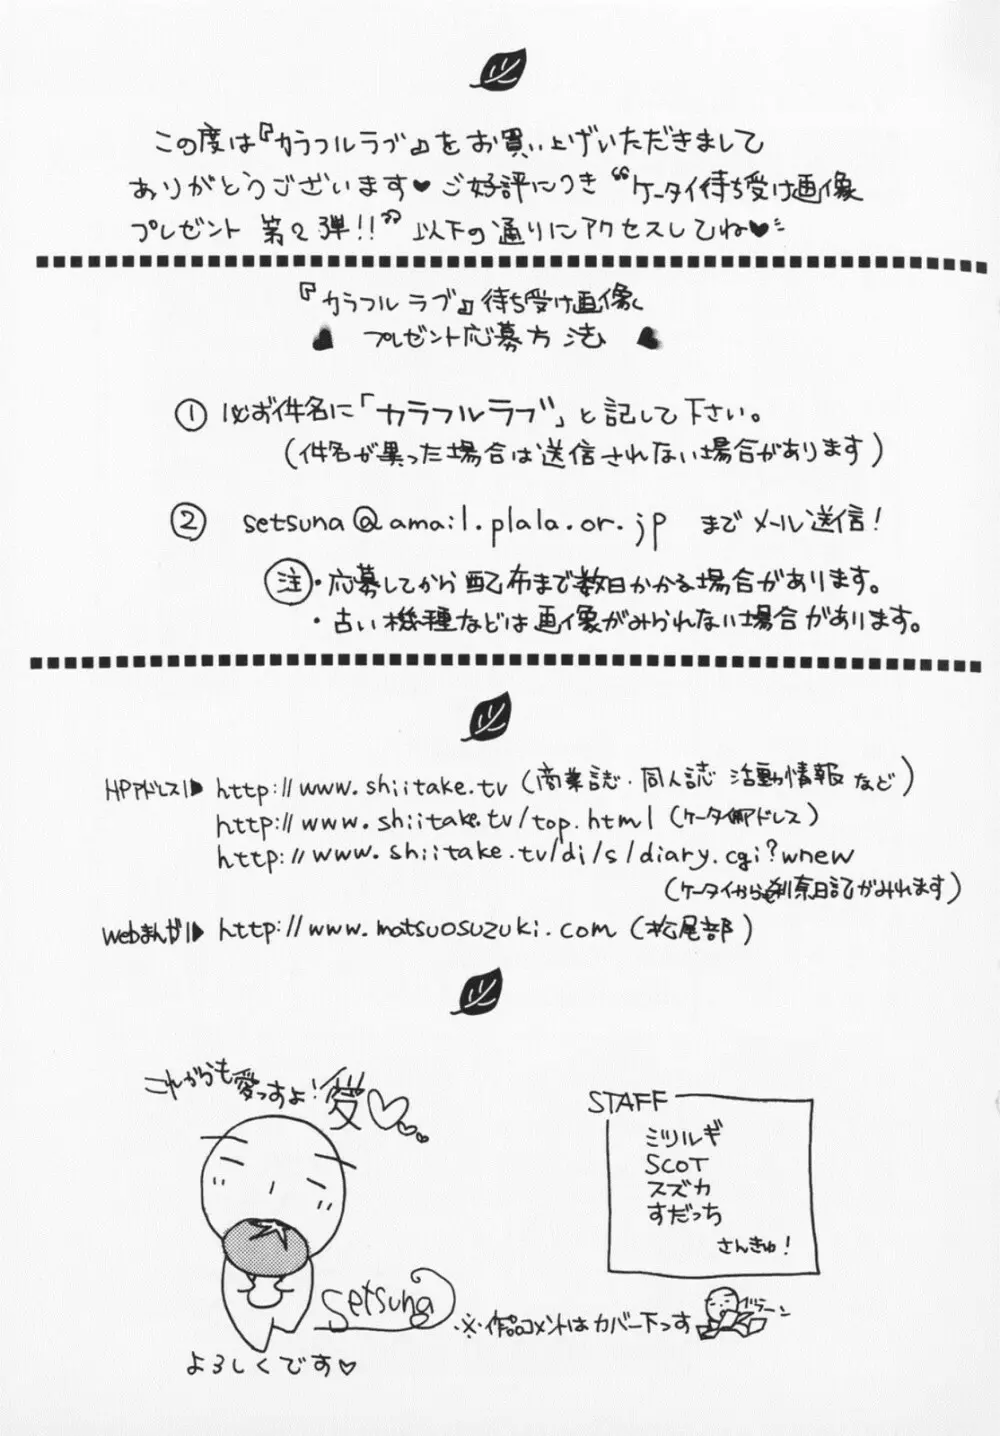 この度は『カラフルラブ』をお買い上げいただきまして
ありがとうございます♥ご好評につき“ケータイ待ち受け画像
プレゼント 第2弾!!”以下の通りにアクセスしてね♥
『カラフルラブ』待ち受け画像
プレゼント応募方法
① 必ず件名に「カラフルラブ」と記して下さい。
(件名が異った場合は送信されない場合があります)
② setsuna@amail.plala.or.jp までメール送信!
注・応募してから配布まで数日かかる場合があります。
・古い機種などは画像がみられない場合があります。
HPアドレス▶ http://www.shiitake.tv (商業誌・同人誌 活動情報など)
http://www.shiitake.tv/top.html (ケータイ用アドレス)
http://www.shiitake.tv/di/s/diary.cgi?wnew
(ケータイからも刹奈日記がみれます)
Webまんが▶ http://www.matsuosuzuki.com (松尾部)
これからも愛っすよ!愛♡
STAFF
ミツルギ
SCOT
スズカ
すだっち
さんきゅ!
Setsuna
※作品コメントはカバー下っす
よろしくです♡